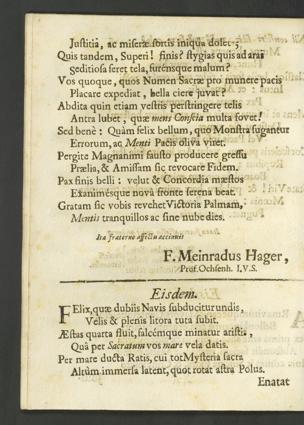 Justitiâ, ac miseræ sortis iniqua dolet?
Quis tandem, Superi! finis? stygias quis ad arai
seditiosa feret tela, furensque malum?
Vos quoque, quos Numen Sacræ pro munere pacis
Placare expediat, bella ciere juvat?
Abdita quin etiam vestris perstringere telis
Antra lubet, quæ mens Conscia multa fovet!
Sed benè: Quàm felix bellum, quo Monstra fugantur
Errorum, ac Menti Pacis oliva viret.
Pergite Magnanimi fausto producere gressu
Prælia, & Amissam sic revocare Fidem.
Pax finis belli: velut & Concordia mæstos
Exanimésque novâ fronte serena beat.
Gratam sic vobis revehet Victoria Palmam,
Mentis tranquillos ac sine nube dies.
Ita fraterno affectu accinuit
F. Meinradus Hager,
Prof. Ochsenh. I.V.S.
Eisdem.
FElix, quæ dubiis Navis subducitur undis,
Velis & plenis litora tuta subit.
Æstas quarta fluit, falcémque minatur aristis,
Quà per Sacratum vos mare vela datis.
Per mare ducta Ratis, cui tot Mysteria sacra
Altùm immersa latent, quot rotat astra Polus.
Enatat